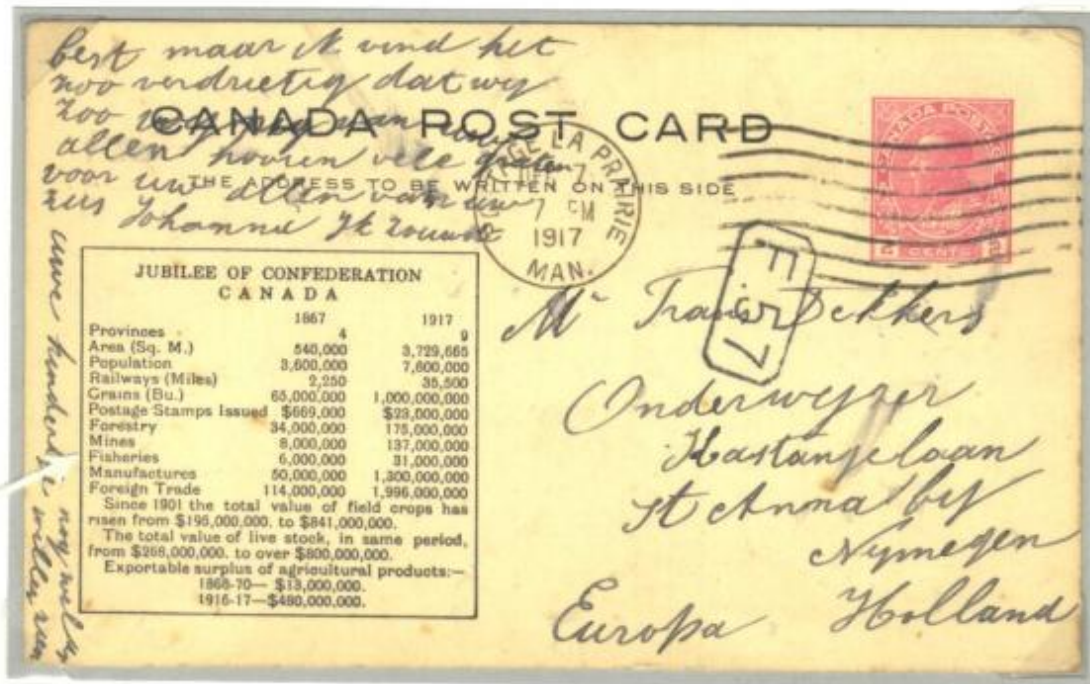 best maar ik vind het
zoo verdrietig dat wy
zoo
allen hooren vele groeten
voor uw allen van uw
zus Johanna
CANADA POST CARD
THE ADDRESS TO BE WRITTEN ON THIS SIDE
LA PRAIRIE
7 PM
1917
MAN.
CANADA POSTAGE
2 CENTS 2
E 57
JUBILEE OF CONFEDERATION
CANADA
1867 1917
Provinces 4 9
Area (Sq. M.) 540,000 3,729,665
Population 3,600,000 7,600,000
Railways (Miles) 2,250 35,500
Grains (Bu.) 65,000,000 1,000,000,000
Postage Stamps Issued $669,000 $23,000,000
Forestry 34,000,000 175,000,000
Mines 8,000,000 137,000,000
Fisheries 6,000,000 31,000,000
Manufactures 50,000,000 1,300,000,000
Foreign Trade 114,000,000 1,996,000,000
Since 1901 the total value of field crops has
risen from $195,000,000. to $841,000,000.
The total value of live stock, in same period,
from $268,000,000. to over $800,000,000.
Exportable surplus of agricultural products:—
1868-70— $13,000,000.
1916-17—$480,000,000.
uwe
nog wel
Mr Frans Dekkers
Onderwyzer
Kastanjelaan
St Anna by
Nymegen
Holland
Europa